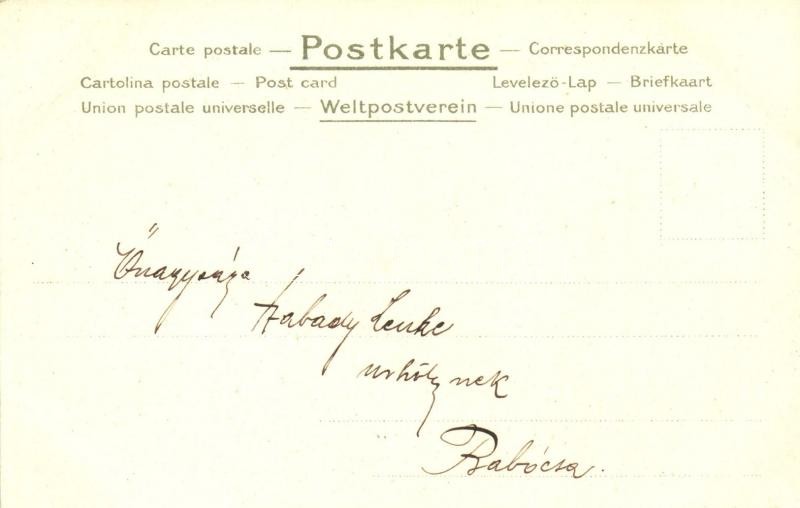 Carte postale — Postkarte — Correspondenzkarte
Cartolina postale — Post card Levelező-Lap — Briefkaart
Union postale universelle — Weltpostverein — Unione postale universale
Őnagysága
Lenke
urhölgynek
Babócsa.